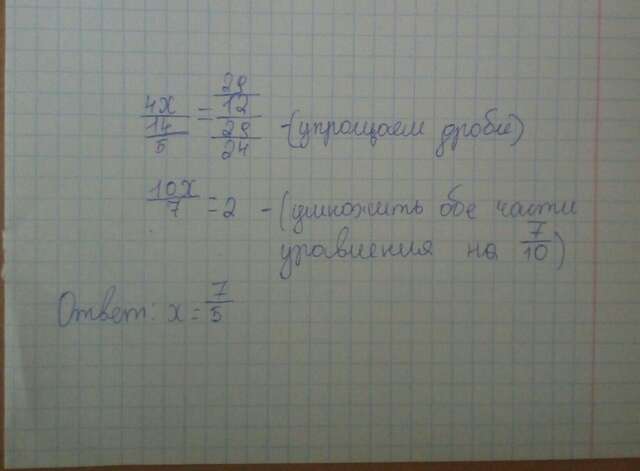 4x/(14/5) = (29/12)/(29/24) -(упрощаем дроби)
10x/7 = 2 - (умножить обе части
уравнения на 7/10)
Ответ: x = 7/5